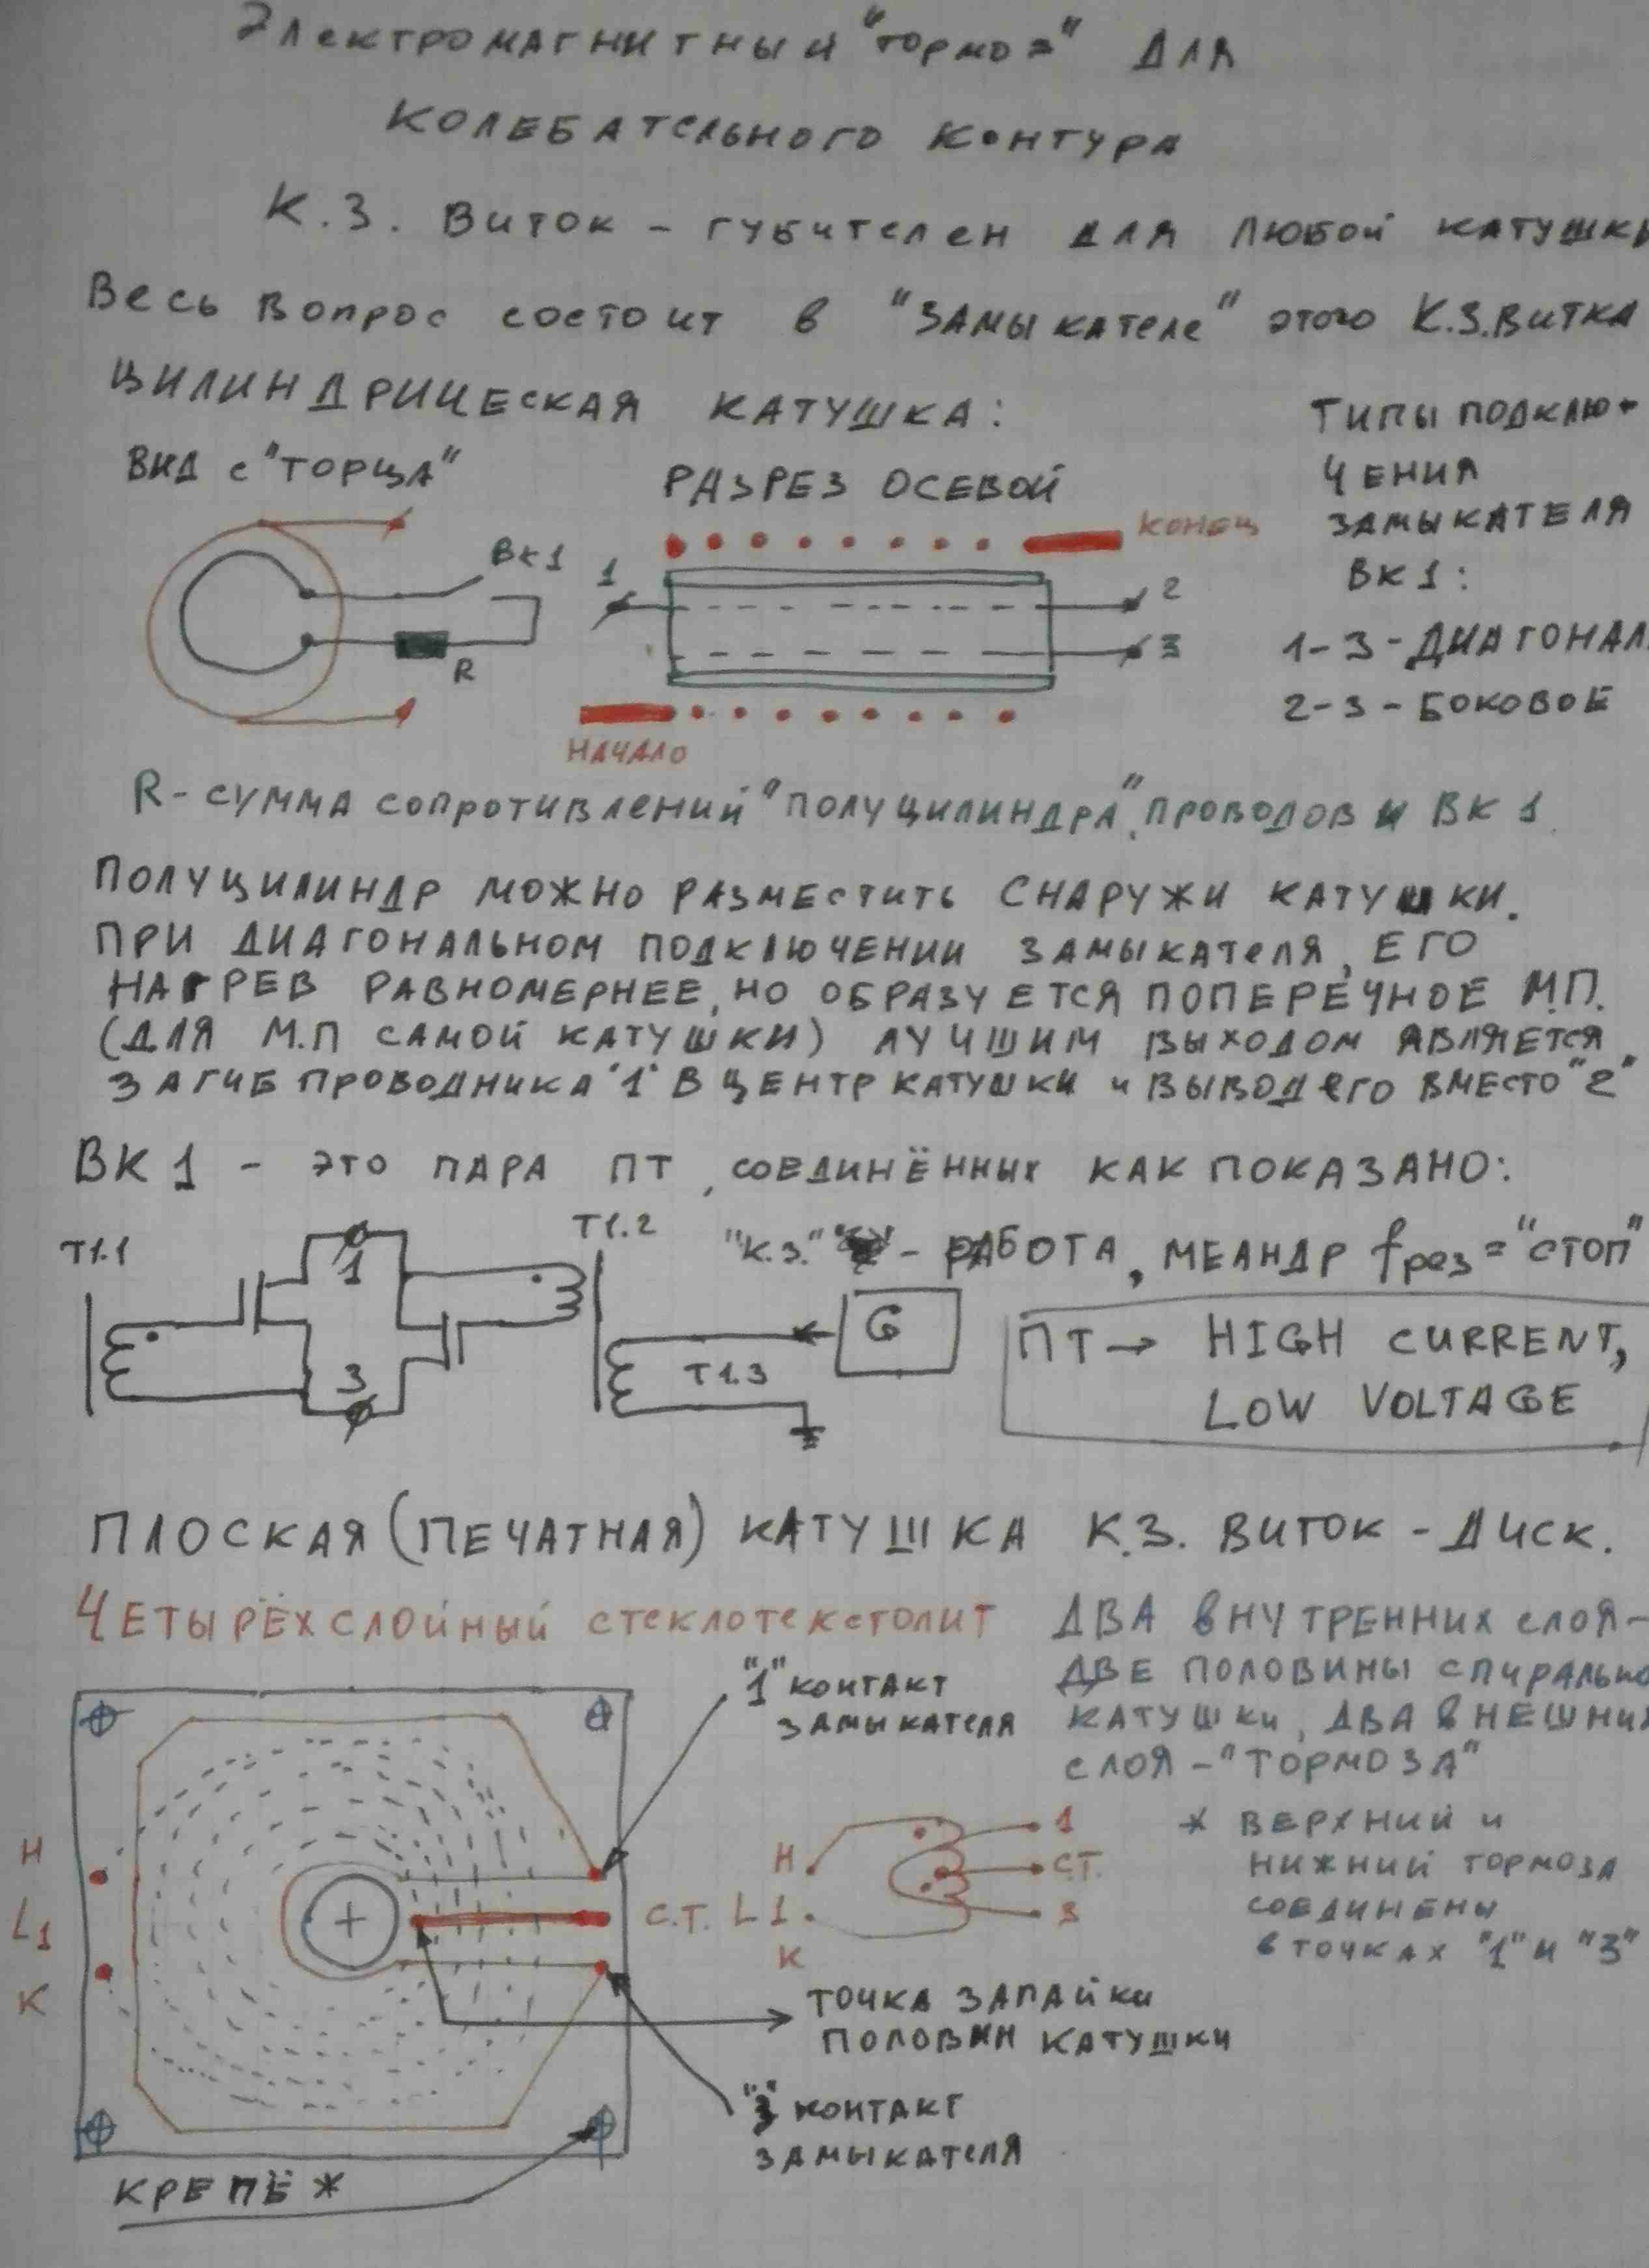 Электромагнитный "тормоз" для
колебательного контура
К.З. Виток - губителен для любой катушки
Весь вопрос состоит в "замыкателе" этого К.З.витка
ЦИЛИНДРИЧЕСКАЯ КАТУШКА:
ВИД с "ТОРЦА"
РАЗРЕЗ ОСЕВОЙ
ТИПЫ ПОДКЛЮ-
ЧЕНИЯ
ЗАМЫКАТЕЛЯ
ВК1:
1-3-ДИАГОНАЛ
2-3-БОКОВОЕ
ВК1
R
1
КОНЕЦ
2
3
НАЧАЛО
R-сумма сопротивлений "полуцилиндра", проводов и ВК1
ПОЛУЦИЛИНДР МОЖНО РАЗМЕСТИТЬ СНАРУЖИ КАТУШКИ.
ПРИ ДИАГОНАЛЬНОМ ПОДКЛЮЧЕНИИ ЗАМЫКАТЕЛЯ, ЕГО
НАГРЕВ РАВНОМЕРНЕЕ, НО ОБРАЗУЕТСЯ ПОПЕРЕЧНОЕ М.П.
(ДЛЯ М.П САМОЙ КАТУШКИ) ЛУЧШИМ ВЫХОДОМ ЯВЛЯЕТСЯ
ЗАГИБ ПРОВОДНИКА "1" В ЦЕНТР КАТУШКИ и ВЫВОД его ВМЕСТО "2"
ВК1 - это ПАРА ПТ, СОЕДИНЁННЫХ КАК ПОКАЗАНО:
Т1.1
1
3
Т1.2
Т1.3
G
"К.З." - РАБОТА, МЕАНДР fрез = "СТОП"
ПТ → HIGH CURRENT,
LOW VOLTAGE
ПЛОСКАЯ (ПЕЧАТНАЯ) КАТУШКА К.З. ВИТОК - ДИСК.
ЧЕТЫРЁХСЛОЙНЫЙ стеклотекстолит
ДВА ВНУТРЕННИХ слоя-
ДВЕ ПОЛОВИНЫ спирально
КАТУШКИ, ДВА ВНЕШНИХ
слоя - "ТОРМОЗА"
"1" КОНТАКТ
ЗАМЫКАТЕЛЯ
Н
L1
К
С.Т.
Н
L1
К
1
СТ.
3
* ВЕРХНИЙ и
НИЖНИЙ ТОРМОЗА
СОЕДИНЕНЫ
в точках "1" и "3"
ТОЧКА ЗАПАЙКИ
ПОЛОВИН КАТУШКИ
"3" КОНТАКТ
ЗАМЫКАТЕЛЯ
КРЕПЁЖ